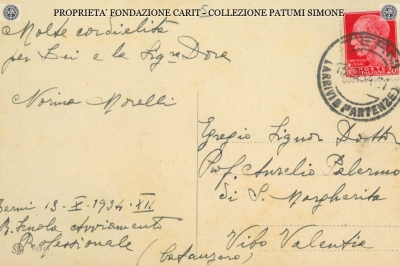 PROPRIETA' FONDAZIONE CARIT - COLLEZIONE PATUMI SIMONE
Molte cordialità
per Lei e la Sigra Dora
Norina Morelli
(ARRIVI E PARTENZE)
Egregio Signor Dottor
Prof. Aurelio Palermo
di S. Margherita
Vibo Valentia
(Catanzaro)
Terni 13-X-1934-XII
R. Scuola Avviamento
Professionale